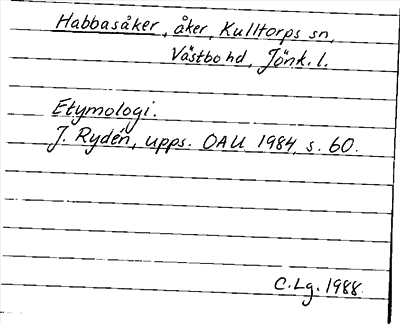 Habbasåker, åker, Kulltorps sn,
Västbo hd, Jönk. l.
Etymologi.
J. Rydén, upps. OAU 1984, s. 60.
C.Lg. 1988.